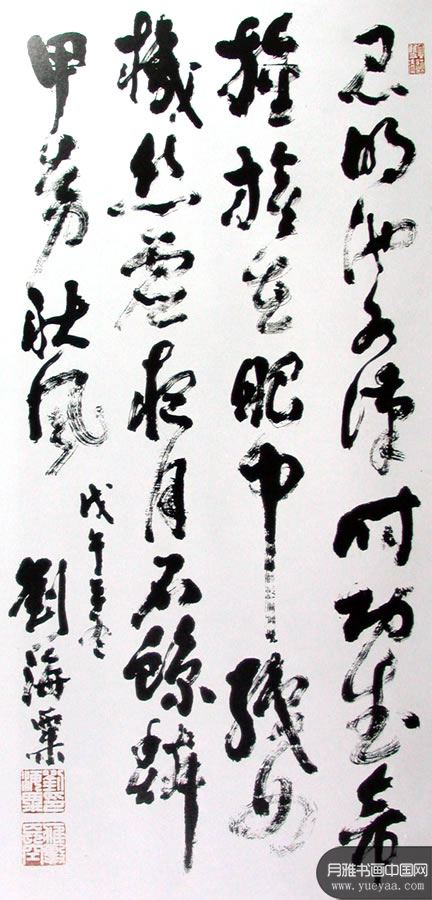 昆明池水漢時功武帝
旌旗在眼中織女
機絲虛夜月石鯨鱗
甲動秋風
戊午
劉海粟
月雅书画中国网
www.yueyaa.com